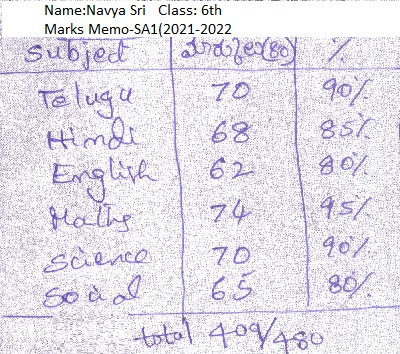 Name:Navya Sri Class: 6th
Marks Memo-SA1(2021-2022
Subject (80) %
Telugu 70 90%
Hindi 68 85%
English 62 80%
Maths 74 95%
Science 70 90%
Social 65 80%
total 409/480